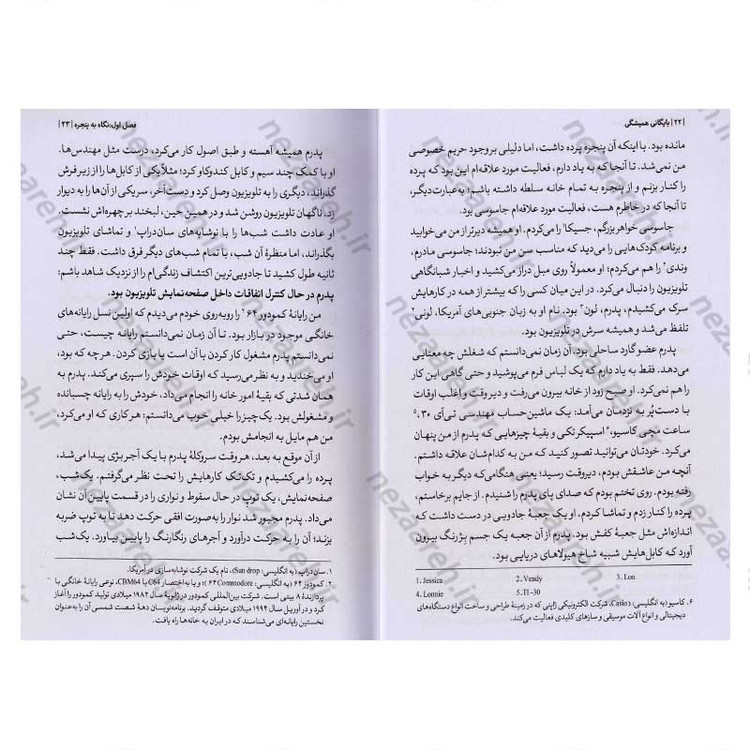 | ۲۲ | بایگانی همیشگی
مانده بود. با اینکه آن پنجره پرده داشت، اما دلیلی بر وجود حریم خصوصی
من نمی‌شد. تا آنجا که به یاد دارم، فعالیت مورد علاقه‌ام این بود که پرده
را کنار بزنم و از پنجره به تمام خانه سلطه داشته باشم؛ به‌عبارت‌دیگر،
تا آنجا که در خاطرم هست، فعالیت مورد علاقه‌ام جاسوسی بود.
جاسوسی خواهر بزرگم، جسیکا۱ را می‌کردم. او همیشه دیرتر از من می‌خوابید
و برنامه کودک‌هایی را می‌دید که مناسب سن من نبودند؛ جاسوسی مادرم،
وندی۲ را هم می‌کردم؛ او معمولاً روی مبل دراز می‌کشید و اخبار شبانگاهی
تلویزیون را دنبال می‌کرد. در این میان کسی را که بیشتر از همه در کارهایش
سرک می‌کشیدم، پدرم، لون۳ بود. نام او به زبان جنوبی‌های آمریکا، لونی۴
تلفظ می‌شد و همیشه سرش در تلویزیون بود.
پدرم عضو گارد ساحلی بود. آن زمان نمی‌دانستم که شغلش چه معنایی
می‌دهد. فقط به یاد دارم که یک لباس فرم می‌پوشید و حتی گاهی این کار
را هم نمی‌کرد. او صبح زود از خانه بیرون می‌رفت و دیروقت و اغلب اوقات
با دست پُر به نزدمان می‌آمد: یک ماشین‌حساب مهندسی تی‌آی ۳۰،۵
ساعت مچی کاسیو،۶ اسپیکر تکی و بقیهٔ چیزهایی که پدرم از من پنهان
می‌کرد. خودتان می‌توانید تصور کنید که من به کدام‌شان علاقه داشتم.
آنچه من عاشقش بودم، دیروقت رسید؛ یعنی هنگامی‌که دیگر به خواب
رفته بودم. روی تختم بودم که صدای پای پدرم را شنیدم. از جایم برخاستم،
پرده را کنار زدم و تماشا کردم. او یک جعبهٔ جادویی در دست داشت که
اندازه‌اش مثل جعبهٔ کفش بود. پدرم از آن جعبه یک جسم بژرنگ بیرون
آورد که کابل‌هایش شبیه شاخ هیولاهای دریایی بود.
1. Jessica 2. Vendy 3. Lon
4. Lonnie 5. TI-30
۶. کاسیو (به انگلیسی: Casio)، شرکت الکترونیکی ژاپنی که در زمینهٔ طراحی و ساخت انواع دستگاه‌های
دیجیتالی و انواع آلات موسیقی و سازهای کلیدی فعالیت می‌کند.
فصل اول: نگاه به پنجره | ۲۳ |
پدرم همیشه آهسته و طبق اصول کار می‌کرد، درست مثل مهندس‌ها.
او با کمک چند سیم و کابل کندوکاو کرد؛ مثلاً یکی از کابل‌ها را از زیر فرش
گذراند، دیگری را به تلویزیون وصل کرد و دست‌آخر، سر یکی از آن‌ها را به دیوار
زد. ناگهان تلویزیون روشن شد و در همین حین، لبخند بر چهره‌اش نشست.
او عادت داشت شب‌ها را با نوشابه‌های سان‌دراپ۱ و تماشای تلویزیون
بگذراند، اما منظرهٔ آن شب، با تمام شب‌های دیگر فرق داشت. فقط چند
ثانیه طول کشید تا جادویی‌ترین اکتشاف زندگی‌ام را از نزدیک شاهد باشم:
پدرم در حال کنترل اتفاقات داخل صفحه‌نمایش تلویزیون بود.
من رایانهٔ کمودور ۶۴۲ را روبه‌روی خودم می‌دیدم که اولین نسل رایانه‌های
خانگی موجود در بازار بود. تا آن زمان نمی‌دانستم رایانه چیست، حتی
نمی‌دانستم پدرم مشغول کار کردن با آن است یا بازی کردن. هرچه که بود،
او می‌خندید و به نظر می‌رسید که اوقات خودش را سپری می‌کند. پدرم به
همان شدتی که بقیهٔ امور خانه را انجام می‌داد، خودش را به رایانه چسبانده
و مشغولش بود. یک چیز را خیلی خوب می‌دانستم: هر کاری که او می‌کرد،
من هم مایل به انجامش بودم.
از آن موقع به بعد، هروقت سروکلهٔ پدرم با یک آجر بژی پیدا می‌شد،
پرده را می‌کشیدم و تک‌تک کارهایش را تحت نظر می‌گرفتم. یک شب،
صفحه‌نمایش، یک توپ در حال سقوط و نواری را در قسمت پایین آن نشان
می‌داد. پدرم مجبور شد نوار را به‌صورت افقی حرکت دهد تا به توپ ضربه
بزند؛ آن را به حرکت درآورد و آجرهای رنگارنگ را پایین بیاورد. یک شب
۱. سان‌دراپ (به انگلیسی: Sun drop)، نام یک شرکت نوشابه‌سازی در آمریکا.
۲. کمودور ۶۴ (به انگلیسی: Commodore ۶۴؛ و یا به‌اختصار C64 یا CBM64)، نوعی رایانهٔ خانگی با
پردازندهٔ ۸ بیتی است. شرکت بین‌المللی کمودور در ژانویهٔ سال ۱۹۸۲ میلادی تولید کمودور را آغاز
کرد و در آوریل سال ۱۹۹۴ میلادی متوقف گردید. برنامه‌نویسان دههٔ شصت شمسی آن را به‌عنوان
نخستین رایانه‌ای می‌شناسند که در ایران به خانه‌ها راه یافت.
nezaareh.ir